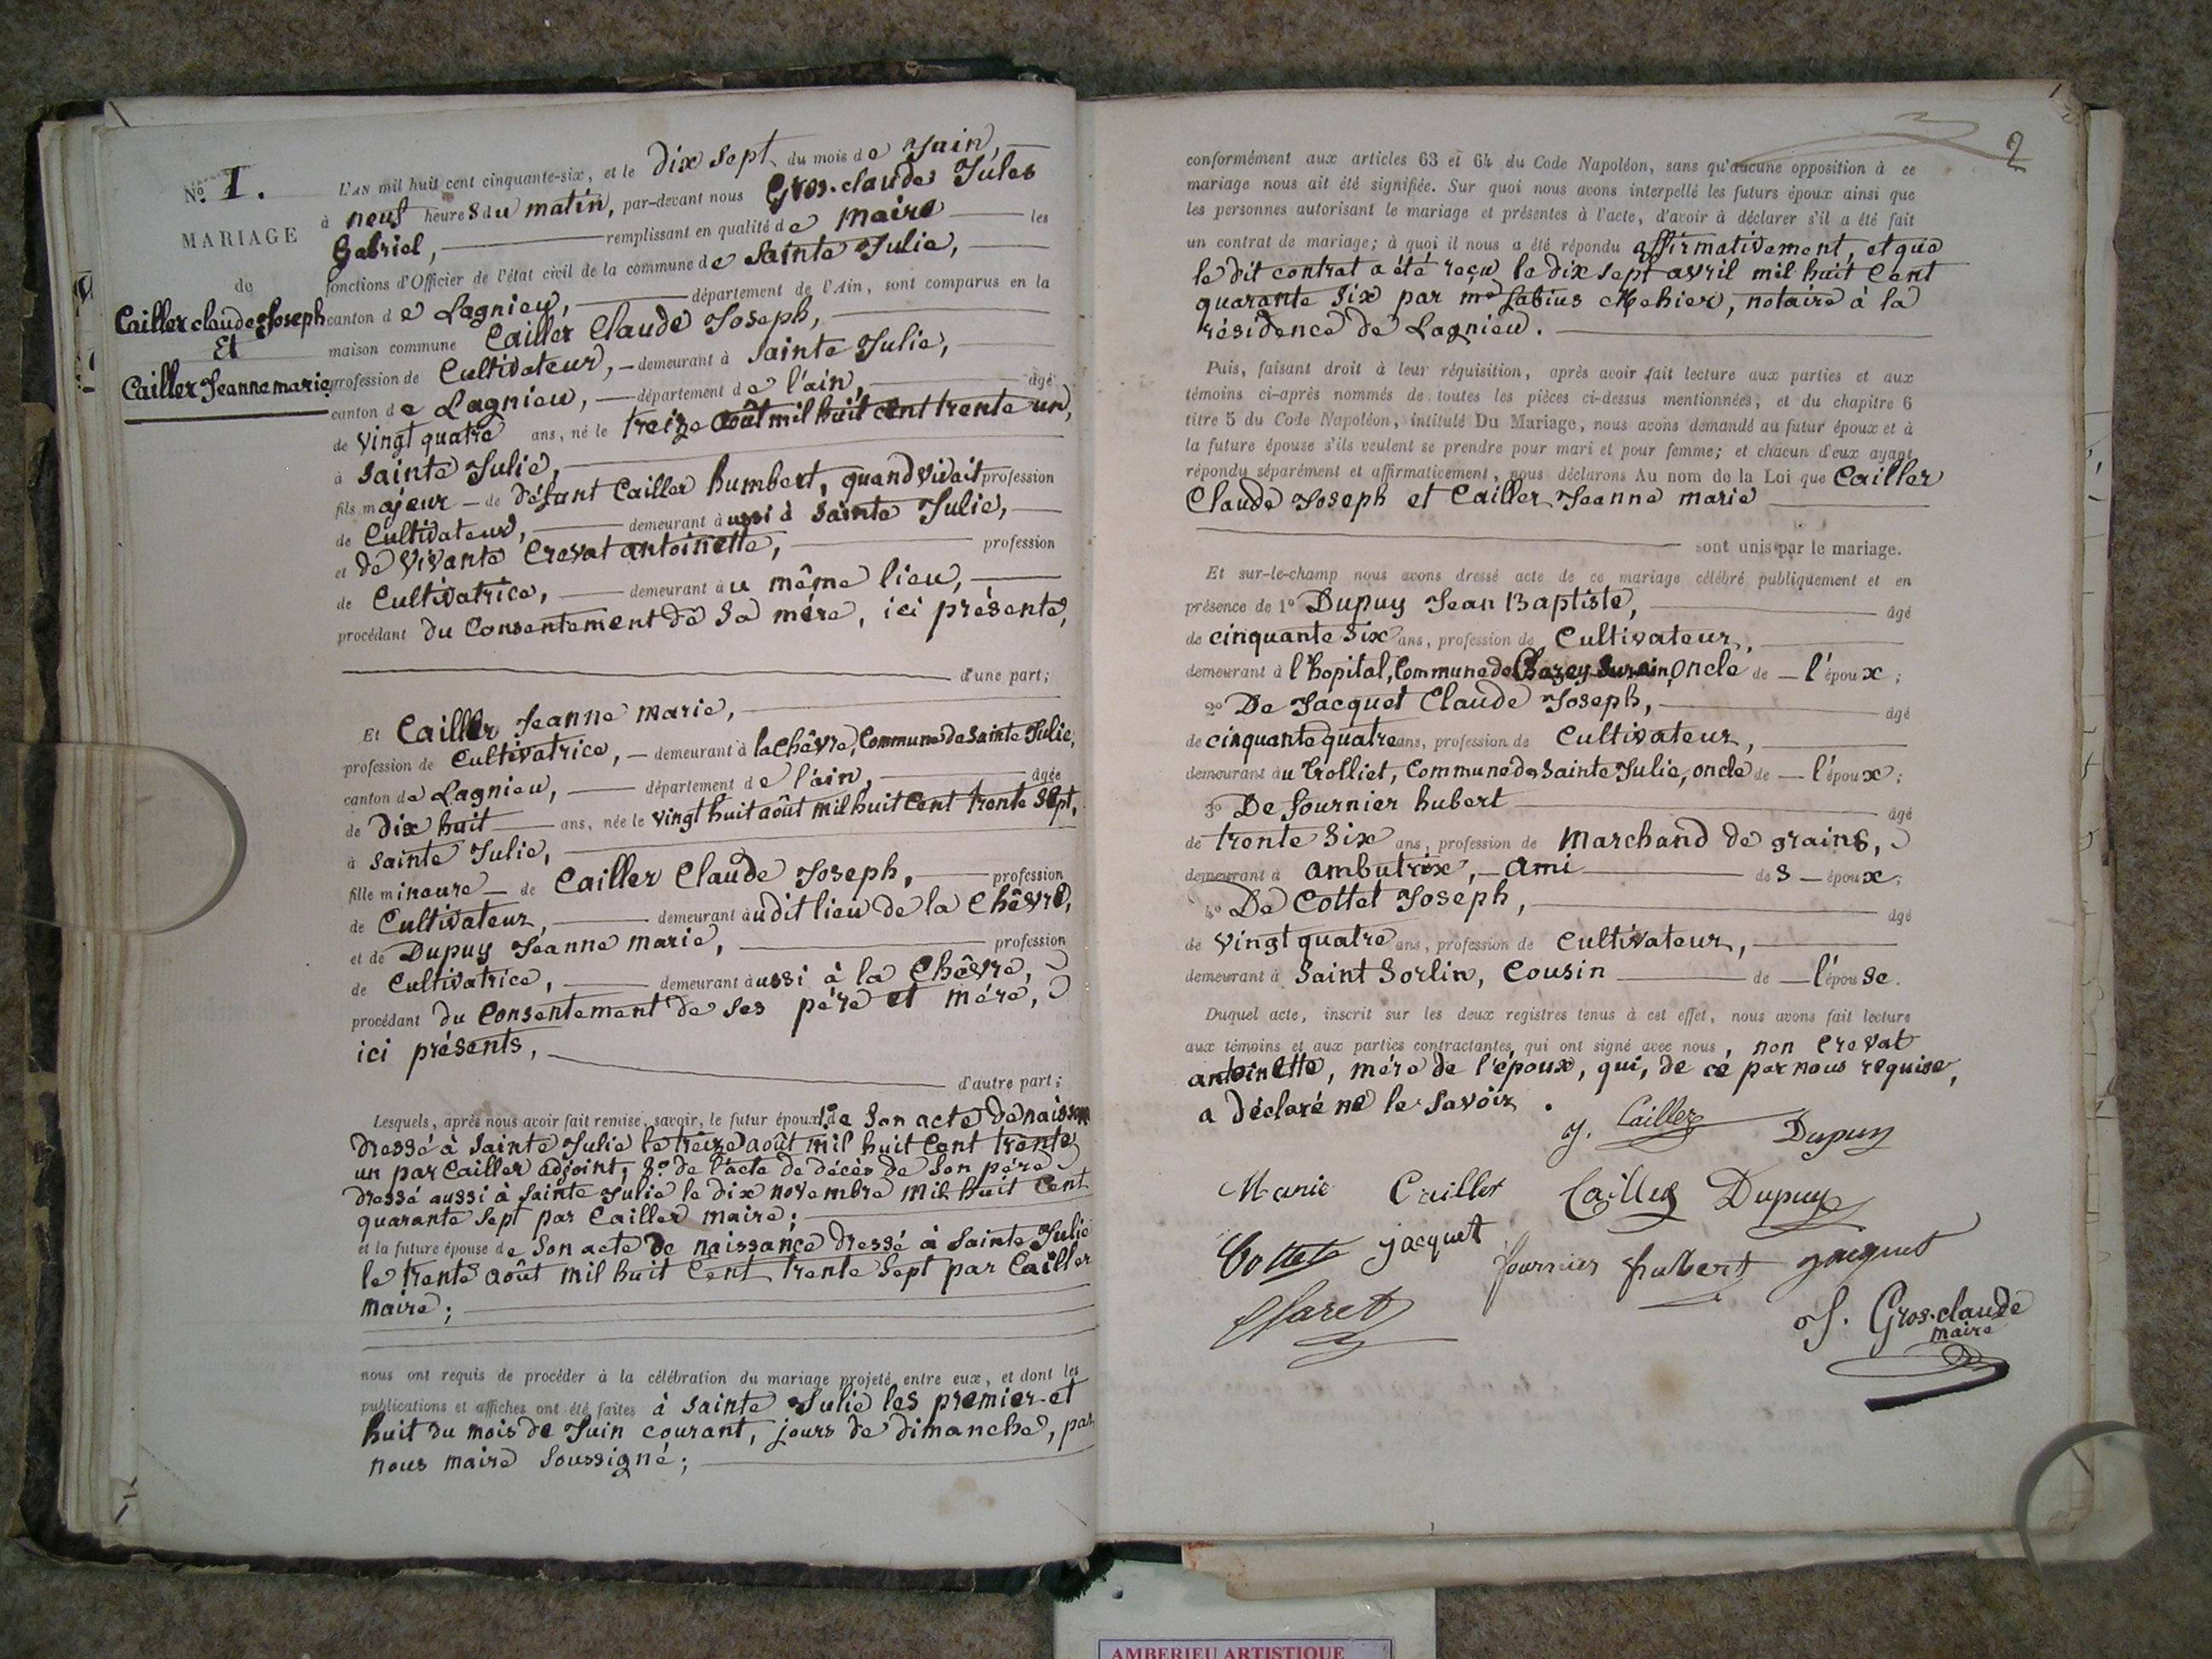 N.º 1.
MARIAGE
de
Cailler claude Joseph
Et
Cailler Jeanne marie.
L'AN mil huit cent cinquante-six, et le Dix Sept du mois de Juin,
à neuf heures du matin, par-devant nous Gros-claude Jules
Gabriel, remplissant en qualité de maire les
fonctions d'Officier de l'état civil de la commune de Sainte Julie,
canton de Lagnieu, département de l'Ain, sont comparus en la
maison commune Cailler Claude Joseph,
profession de Cultivateur, demeurant à Sainte Julie,
canton de Lagnieu, département de l'ain, âgé
de vingt quatre ans, né le treize août mil huit cent trente un,
à Sainte Julie,
fils majeur de Défunt Cailler humbert, quand vivait profession
de Cultivateur, demeurant aussi à Sainte Julie,
et de vivante Crevat antoinette, profession
de Cultivatrice, demeurant au même lieu,
procédant du Consentement de Sa mère, ici présente,
d'une part;
Et Cailler Jeanne marie,
profession de Cultivatrice, demeurant à la Chêvre, Commune de Sainte Julie,
canton de Lagnieu, département de l'ain, âgée
de dix huit ans, née le vingt huit août mil huit cent trente sept,
à Sainte Julie,
fille mineure de Cailler Claude Joseph, profession
de Cultivateur, demeurant audit lieu de la Chêvre,
et de Dupuy Jeanne marie, profession
de Cultivatrice, demeurant aussi à la Chêvre,
procédant du Consentement de ses père et mère,
ici présents,
d'autre part;
Lesquels, après nous avoir fait remise, savoir, le futur époux 1º de Son acte de naissan
dressé à Sainte Julie le treize août mil huit cent trente
un par Cailler adjoint, 2º de l'acte de décès de Son père
dressé aussi à Sainte Julie le dix novembre mil huit cent
quarante sept par Cailler maire;
et la future épouse de Son acte de naissance dressé à Sainte Julie
le trente août mil huit cent trente sept par Cailler
maire;
nous ont requis de procéder à la célébration du mariage projeté entre eux, et dont les
publications et affiches ont été faites à Sainte Julie les premier et
huit du mois de Juin courant, jours de dimanche, par
nous maire Soussigné;
2
conformément aux articles 63 et 64 du Code Napoléon, sans qu'aucune opposition à ce
mariage nous ait été signifiée. Sur quoi nous avons interpellé les futurs époux ainsi que
les personnes autorisant le mariage et présentes à l'acte, d'avoir à déclarer s'il a été fait
un contrat de mariage; à quoi il nous a été répondu affirmativement, et que
le dit contrat a été reçu le dix sept avril mil huit cent
quarante six par me fabius Mehier, notaire à la
résidence de Lagnieu.
Puis, faisant droit à leur réquisition, après avoir fait lecture aux parties et aux
témoins ci-après nommés de toutes les pièces ci-dessus mentionnées, et du chapitre 6
titre 5 du Code Napoléon, intitulé Du Mariage, nous avons demandé au futur époux et à
la future épouse s'ils veulent se prendre pour mari et pour femme; et chacun d'eux ayant
répondu séparément et affirmativement, nous déclarons Au nom de la Loi que Cailler
Claude Joseph et Cailler Jeanne marie
sont unis par le mariage.
Et sur-le-champ nous avons dressé acte de ce mariage célébré publiquement et en
présence de 1º Dupuy Jean Baptiste, âgé
de cinquante six ans, profession de Cultivateur,
demeurant à l'hopital, Commune de Chazey Sur ain, Oncle de l'époux;
2º De Jacquet Claude Joseph, âgé
de cinquante quatre ans, profession de Cultivateur,
demeurant au trolliet, Commune de Sainte Julie, oncle de l'époux;
3º De fournier hubert âgé
de trente six ans, profession de Marchand de grains,
demeurant à ambutrix, Ami des époux;
4º De Cottet Joseph, âgé
de vingt quatre ans, profession de Cultivateur,
demeurant à Saint Sorlin, Cousin de l'épouse.
Duquel acte, inscrit sur les deux registres tenus à cet effet, nous avons fait lecture
aux témoins et aux parties contractantes, qui ont signé avec nous, non Crevat
antoinette, mère de l'époux, qui, de ce par nous requise,
a déclaré ne le Savoir.
J. Cailler Dupuy
Marie Cailler Cailler Dupuy
Cottet jacquet fournier hubert jacquet
Claret
J. Gros-claude
maire
AMBERIEU ARTISTIQUE